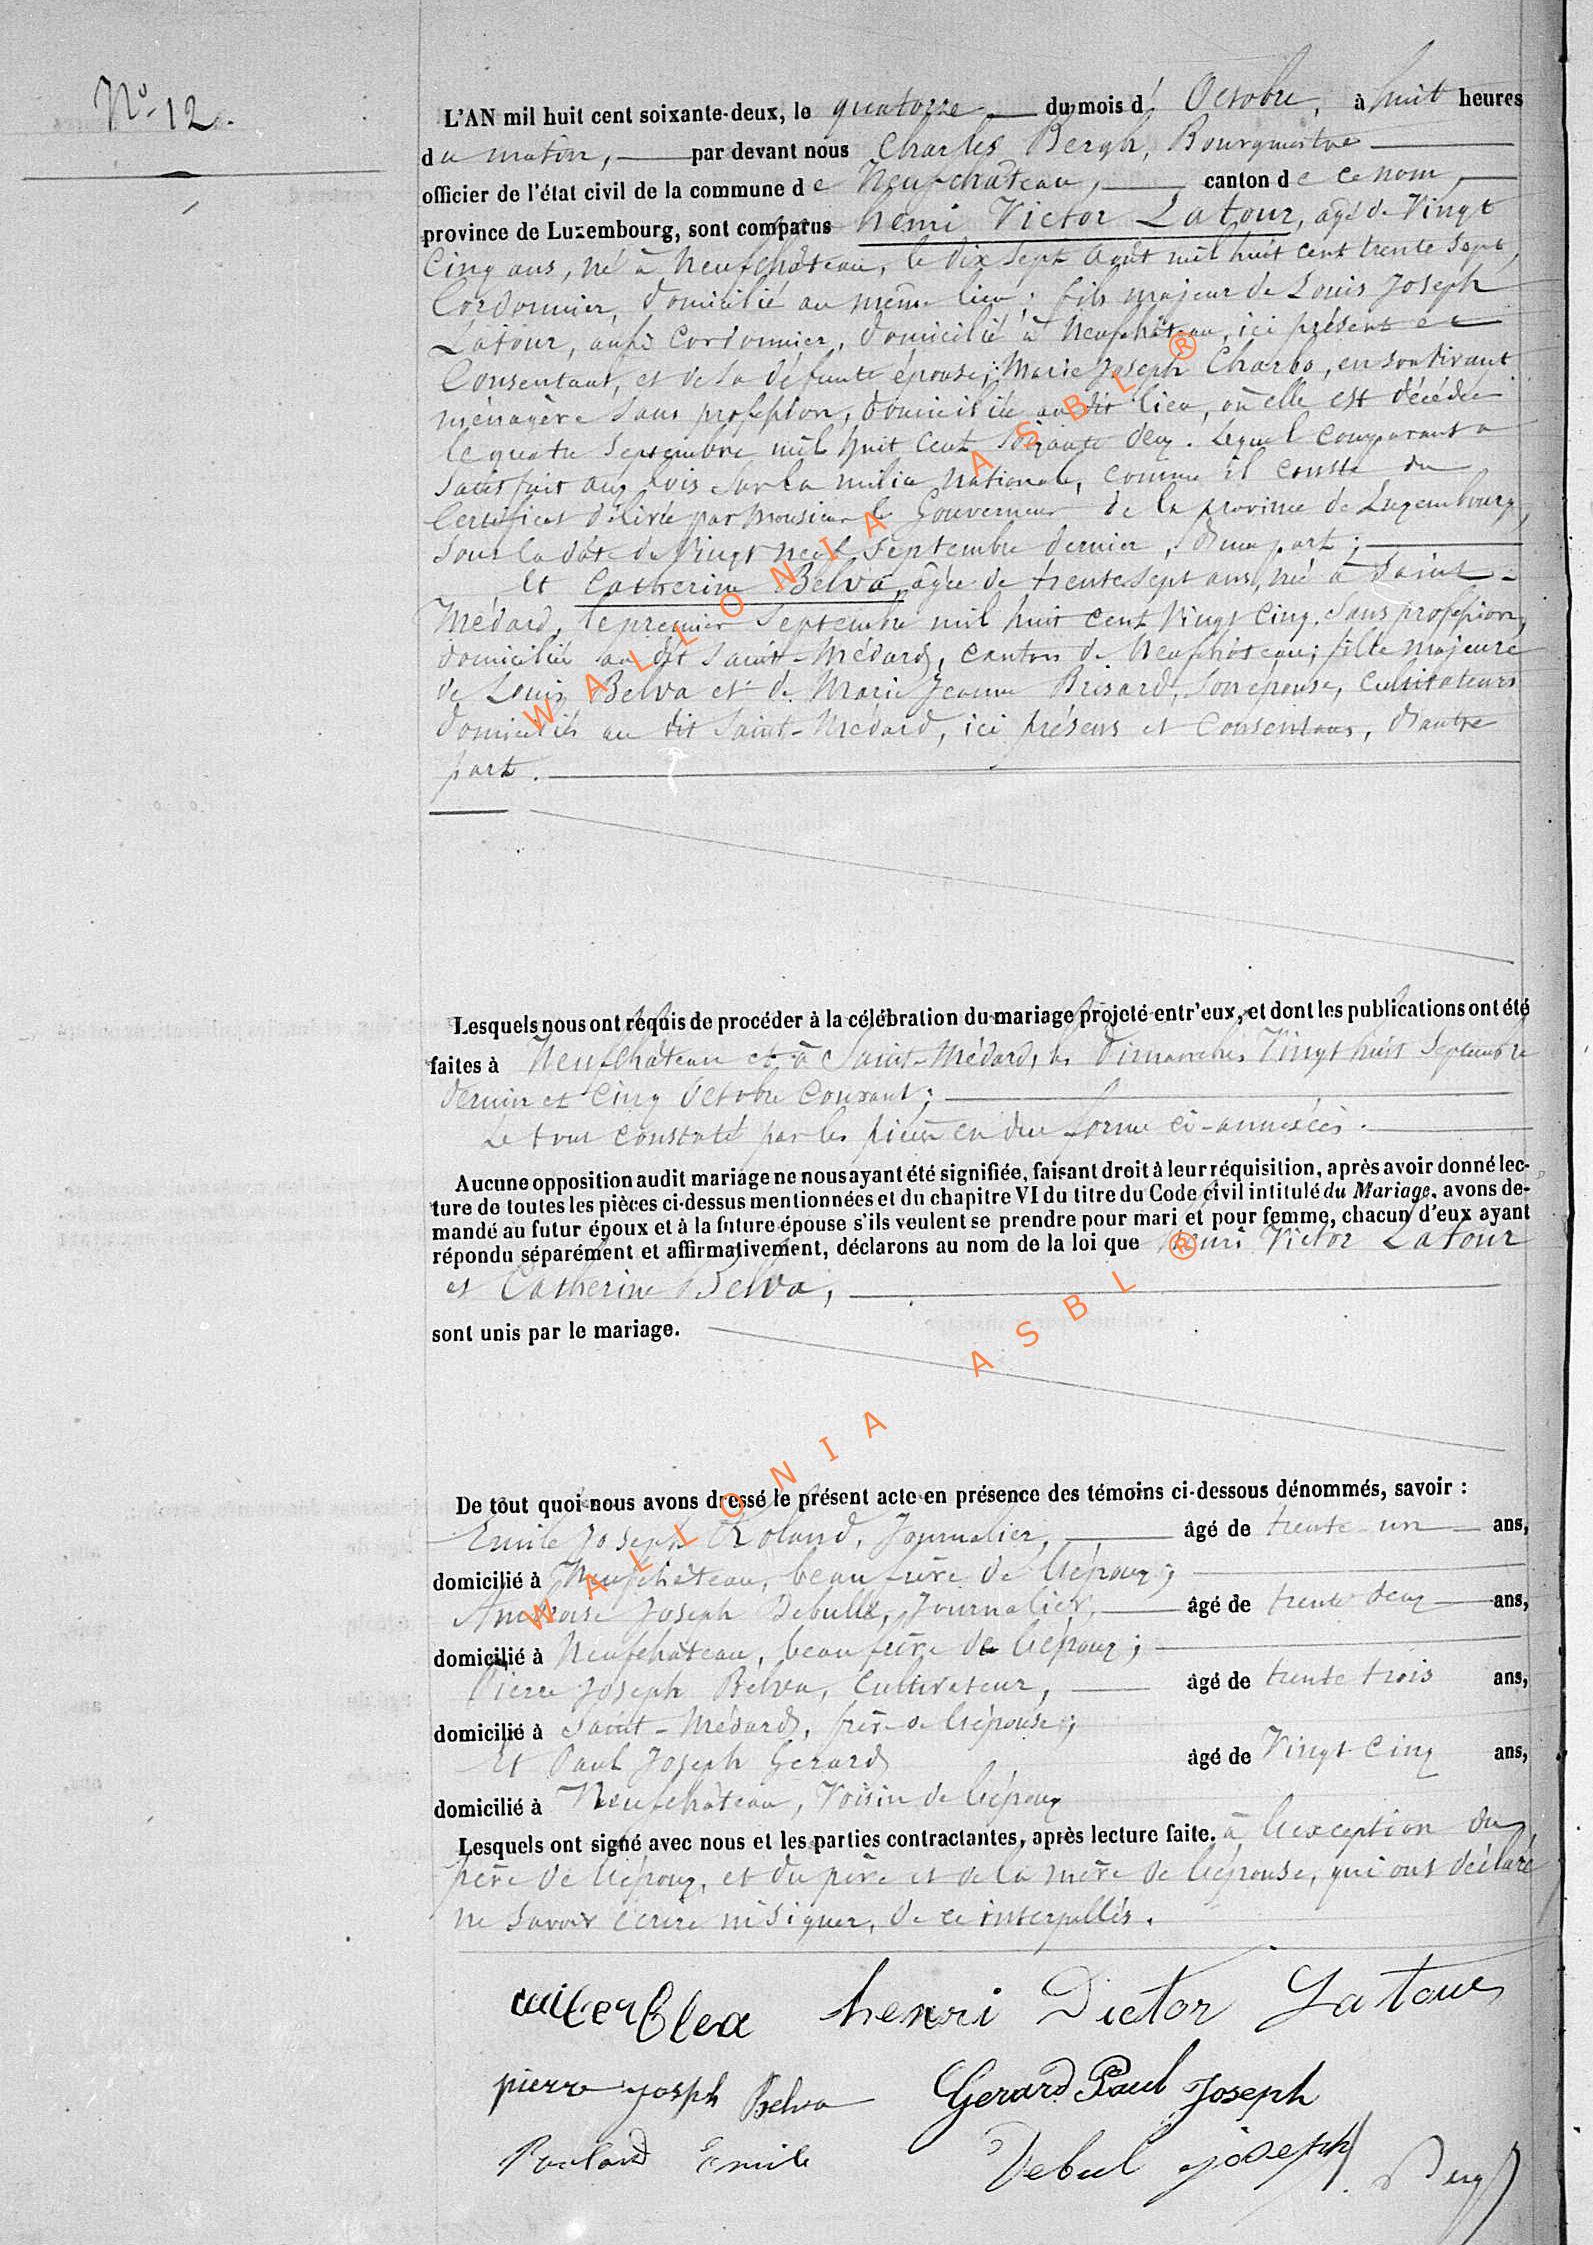 N° 12.
L'AN mil huit cent soixante-deux, le quatorze du mois d' Octobre, à huit heures
du matin, par devant nous Charles Bergh, Bourgmestre
officier de l'état civil de la commune de Neufchâteau, canton de ce nom,
province de Luxembourg, sont comparus henri Victor Latour, agé de Vingt
Cinq ans, né à Neufchâteau, le dix Sept Août mil huit cent trente Sept,
Cordonnier, domicilié au même lieu; fils majeur de Louis Joseph
Latour, aussi Cordonnier, domicilié à Neufchâteau, ici présent et
Consentant, et de sa défunte épouse, Marie Joseph Charlo, en son vivant
ménagère sans profession, domiciliée au dit lieu, où elle est décédée
le quatre Septembre mil huit cent soixante deux. Lequel comparant a
satisfait aux lois sur la milice Nationale, comme il conste du
Certificat délivré par Monsieur le Gouverneur de la province de Luxembourg,
sous la date du Vingt neuf Septembre dernier, d'une part;
Et Catherine Belva, âgée de trente Sept ans, née à Saint-
Médard, le premier Septembre mil huit cent Vingt Cinq, Sans profession,
domiciliée au dit Saint-Médard, canton de Neufchâteau; fille majeure
de Louis Belva et de Marie Jeanne Brisard, son épouse, cultivateurs
domiciliés au dit Saint-Médard, ici présens et Consentans, d'autre
part.
Lesquels nous ont requis de procéder à la célébration du mariage projeté entr'eux, et dont les publications ont été
faites à Neufchâteau et à Saint-Médard, les dimanches Vingt huit Septembre
dernier et Cinq Octobre Courant;
Le tout constaté par les pièces en due forme ci-annexées.
Aucune opposition audit mariage ne nous ayant été signifiée, faisant droit à leur réquisition, après avoir donné lec-
ture de toutes les pièces ci-dessus mentionnées et du chapitre VI du titre du Code civil intitulé du Mariage, avons de-
mandé au futur époux et à la future épouse s'ils veulent se prendre pour mari et pour femme, chacun d'eux ayant
répondu séparément et affirmativement, déclarons au nom de la loi que henri Victor Latour
et Catherine Belva,
sont unis par le mariage.
De tout quoi nous avons dressé le présent acte en présence des témoins ci-dessous dénommés, savoir :
Emile Joseph Roland, Journalier, âgé de trente un ans,
domicilié à Neufchâteau, beau frère de l'époux;
Ambroise Joseph Debulle, Journalier, âgé de trente deux ans,
domicilié à Neufchâteau, beau frère de l'époux;
Pierre Joseph Belva, Cultivateur, âgé de trente trois ans,
domicilié à Saint-Médard, frère de l'épouse;
Et Paul Joseph Gerard âgé de Vingt Cinq ans,
domicilié à Neufchâteau, Voisin de l'époux
Lesquels ont signé avec nous et les parties contractantes, après lecture faite. à l'exception du
père de l'époux, et du père et de la mère de l'épouse, qui ont déclaré
ne savoir écrire ni signer, de ce interpellés.
henri Victor Latour
pierre joseph Belva Gerard Paul Joseph
Roulard Emile Debul joseph
WALLONIA ASBL ®
WALLONIA ASBL ®